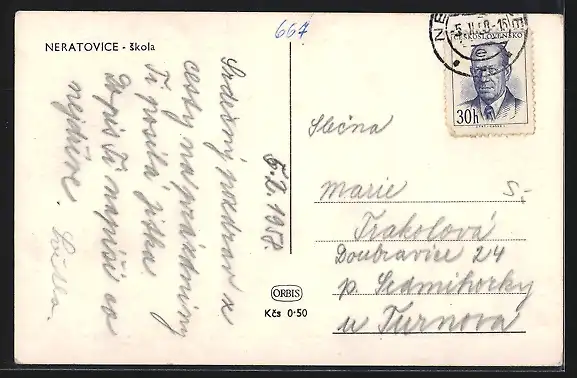 NERATOVICE - škola
667
Srdečný pozdrav z
cesty na prázdniny
Ti posílá Jitka
Dopis Ti napíši co
nejdříve.
5.2.1958
ORBIS
Kčs 0·50
ČESKOSLOVENSKO
30h
Slečna
Marie
Trakalová
Doubravice 24
p. Sedmihorky
u Turnova